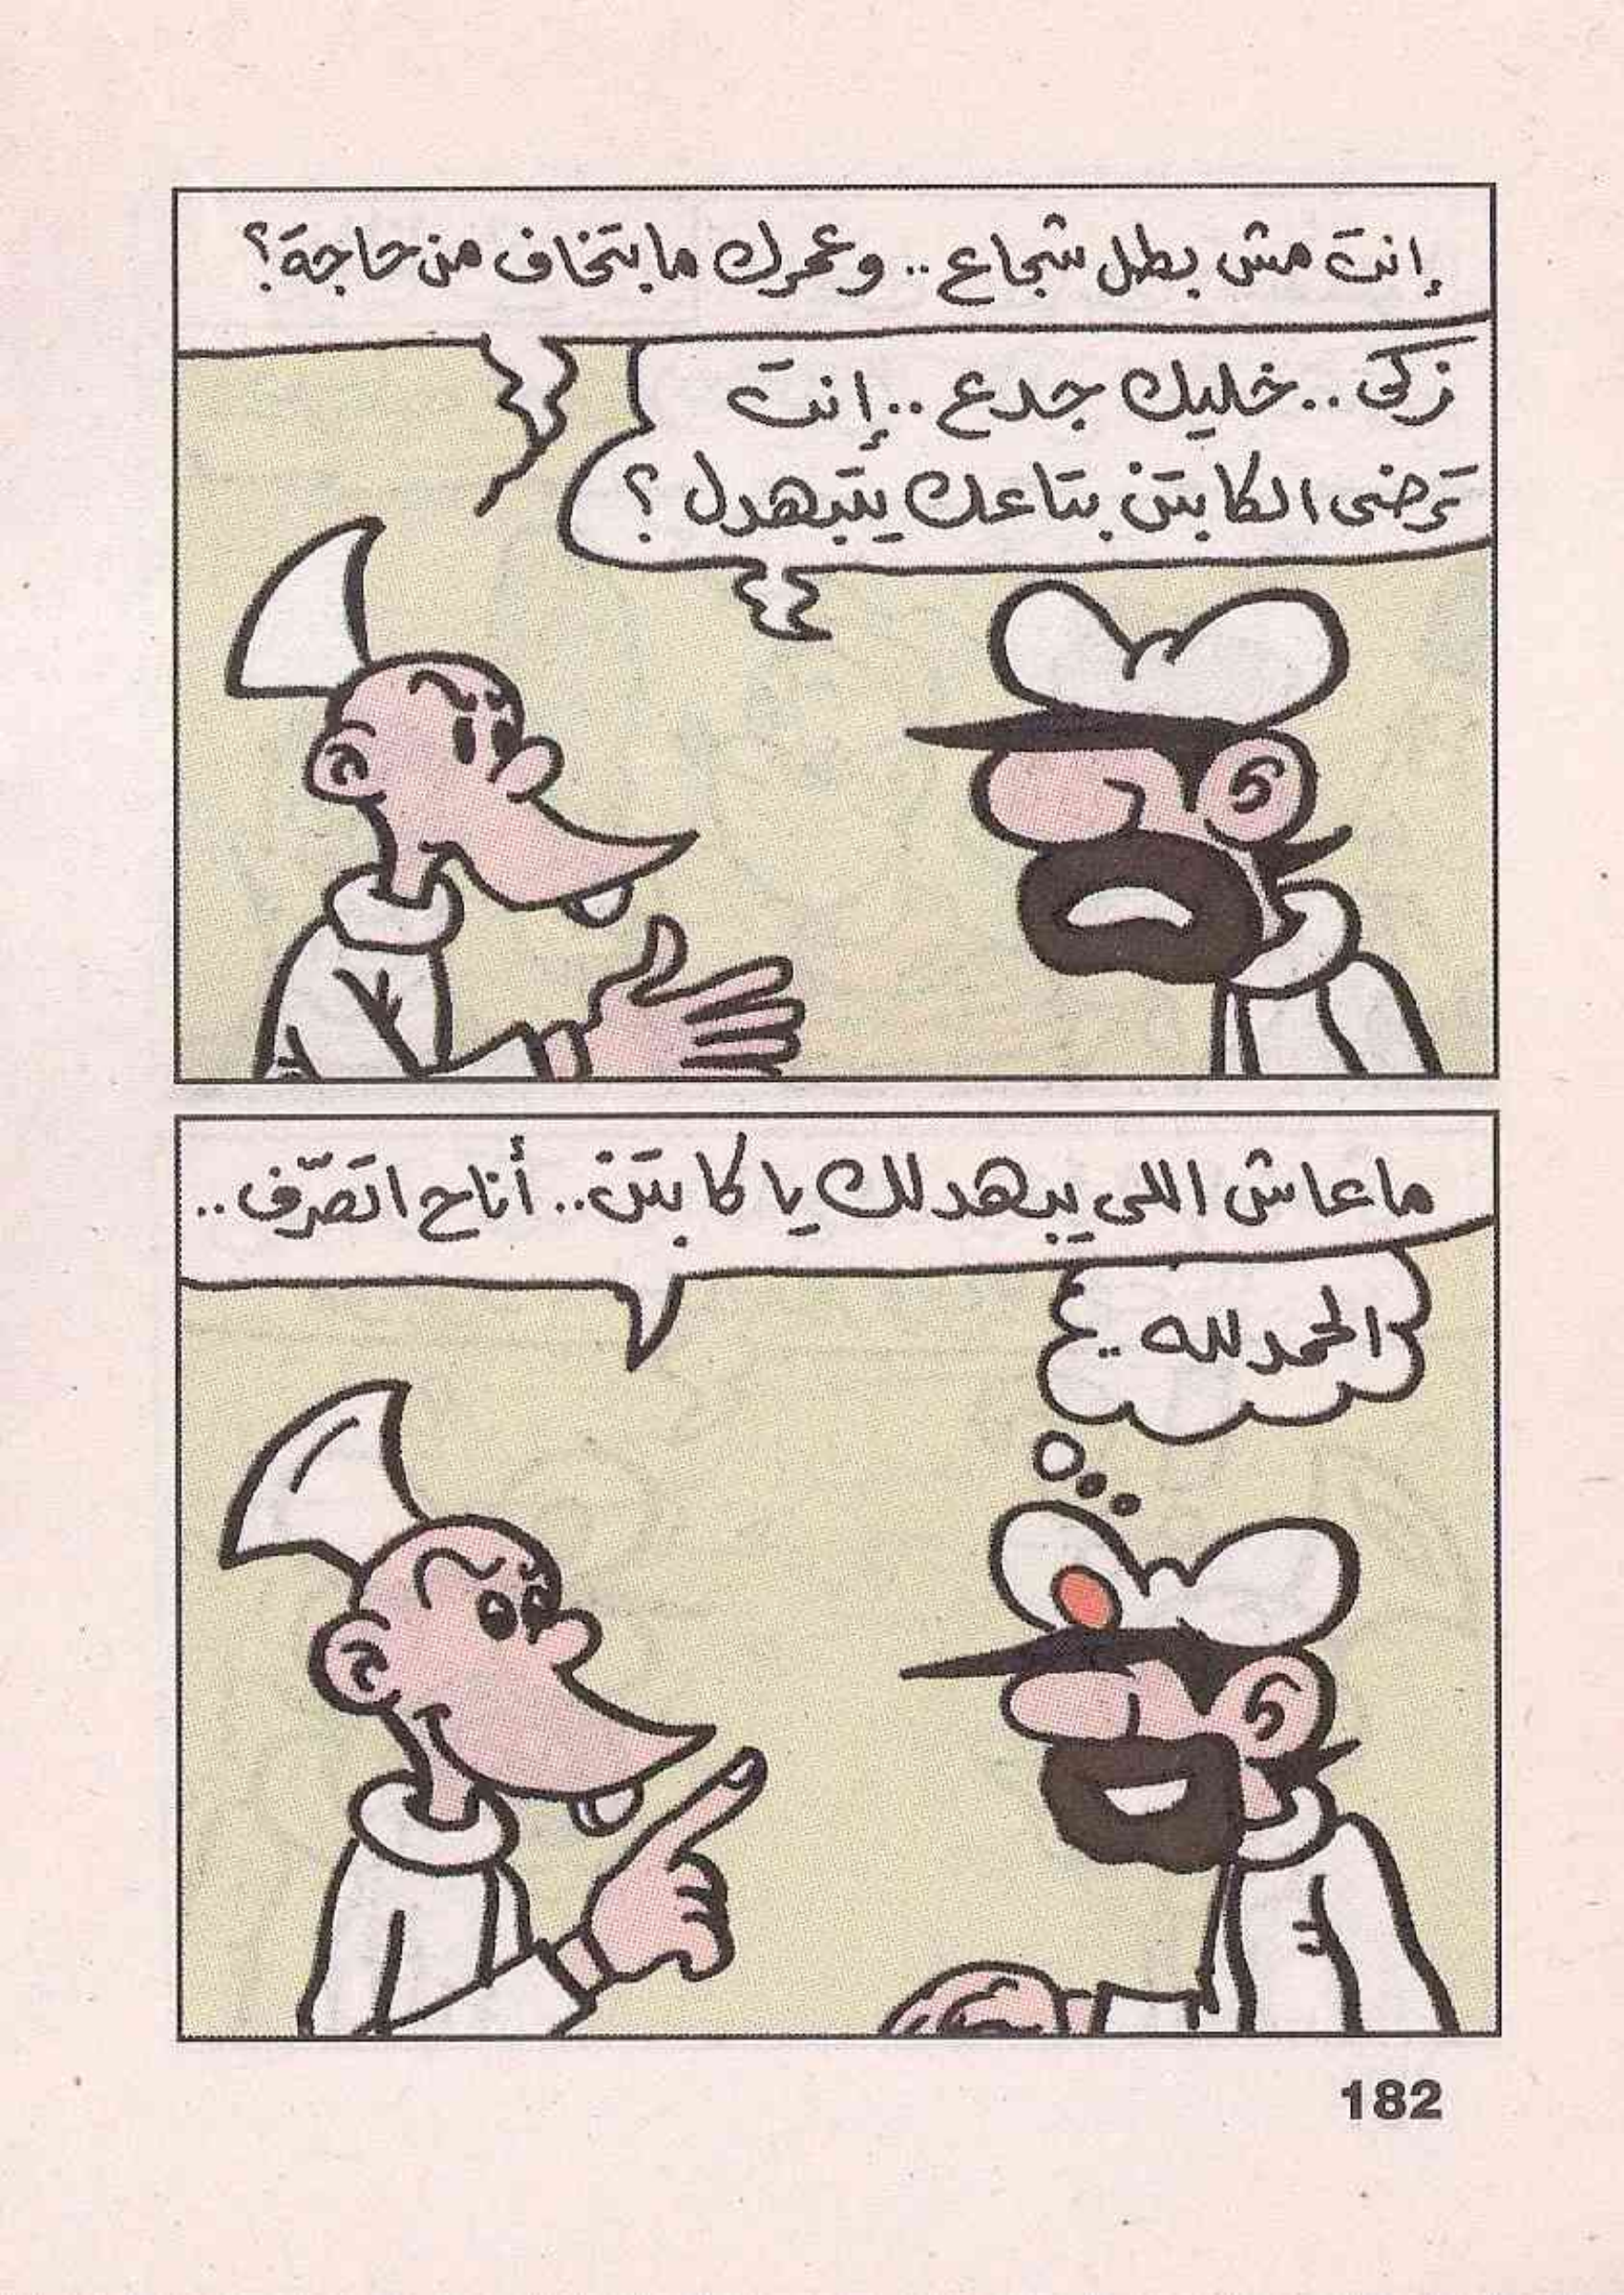 إنت مش بطل شجاع .. وعمرك ما بتخاف من حاجة؟
زكى .. خليك جدع .. إنت
ترضى الكابتن بتاعك يتبهدل ؟
ما عاش اللى يبهدلك يا كابتن .. أنا ح اتصرّف ..
الحمد لله ..
182